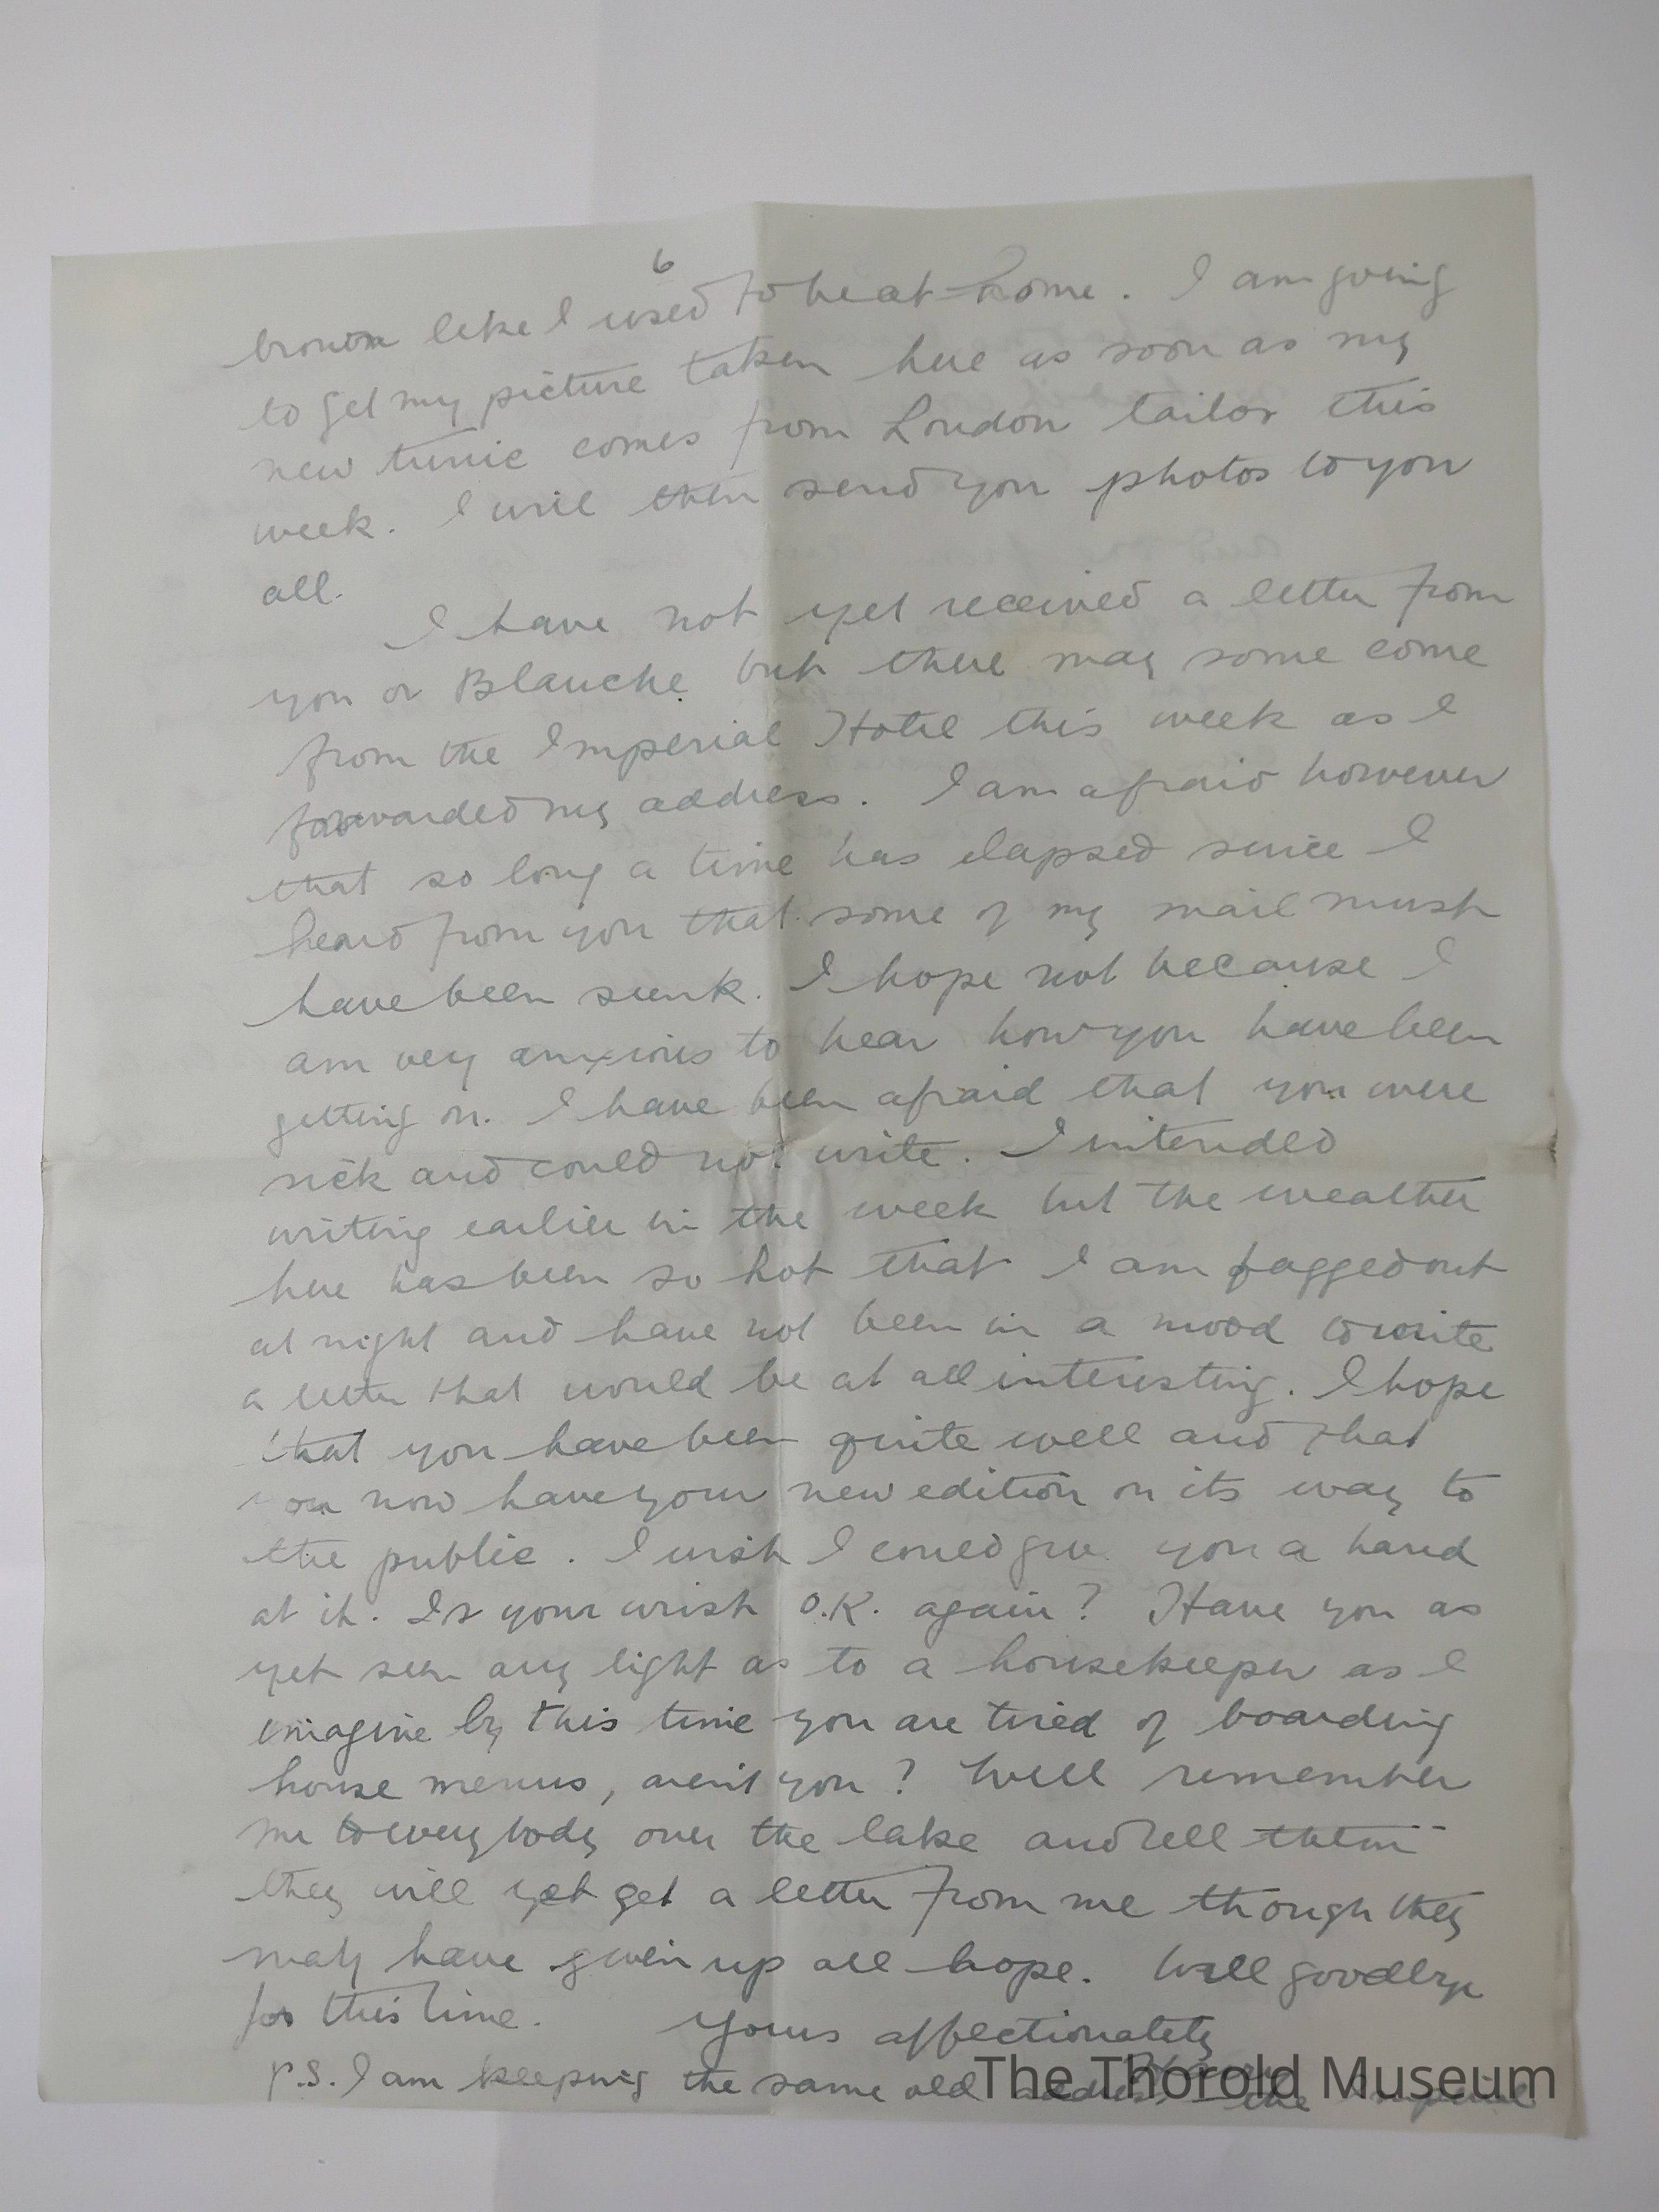 6
brown like I used to be at home. I am going
to get my picture taken here as soon as my
new tunic comes from London tailor this
week. I will then send you photos to you
all.
I have not yet received a letter from
you or Blanche but there may some come
from the Imperial Hotel this week as I
forwarded my address. I am afraid however
that so long a time has elapsed since I
heard from you that some of my mail must
have been sunk. I hope not because I
am very anxious to hear how you have been
getting on. I have been afraid that you were
sick and could not write. I intended
writing earlier in the week but the weather
here has been so hot that I am fagged out
at night and have not been in a mood to write
a letter that would be at all interesting. I hope
that you have been quite well and that
you now have your new edition on its way to
the public. I wish I could give you a hand
at it. Is your wrist O.K. again? Have you as
yet seen any light as to a housekeeper as I
imagine by this time you are tired of boarding
house menus, aren't you? Well remember
me to everybody over the lake and tell them
they will yet get a letter from me though they
may have given up all hope. Well goodbye
for this time. Yours affectionately
P.S. I am keeping the same old address the Imperial
The Thorold Museum